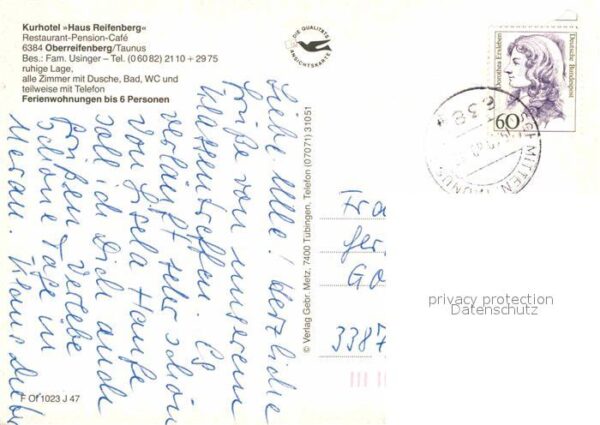 Kurhotel »Haus Reifenberg«
Restaurant-Pension-Café
6384 Oberreifenberg/Taunus
Bes.: Fam. Usinger – Tel. (0 60 82) 21 10 + 29 75
ruhige Lage,
alle Zimmer mit Dusche, Bad, WC und
teilweise mit Telefon
Ferienwohnungen bis 6 Personen
DIE QUALITÄTS
ANSICHTSKARTE
Dorothea Erxleben
Deutsche Bundespost
60
SCHMITTEN
Liebe ! Herzliche
Grüße von unserem
Klassentreffen. Es
verläuft sehr schön
Von Gisela Hauße
soll ich Dich auch
grüßen. Verlebe
schöne Tage in
Meran.
© Verlag Gebr. Metz, 7400 Tübingen, Telefon (07071) 31051
Fra
Ger
Go
3387
privacy protection
Datenschutz
F Of 1023 J 47